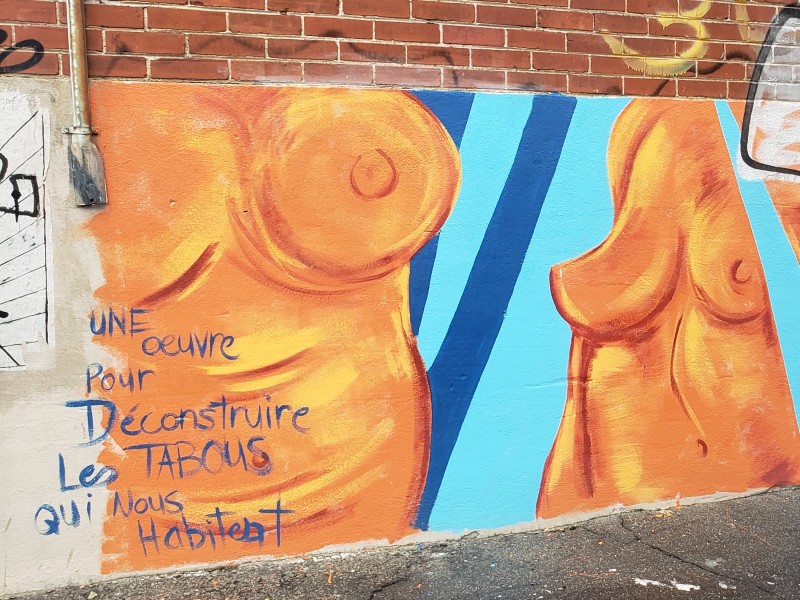 UNE
oeuvre
Pour
Déconstruire
Les TABOUS
QUi NOUS
Habitent